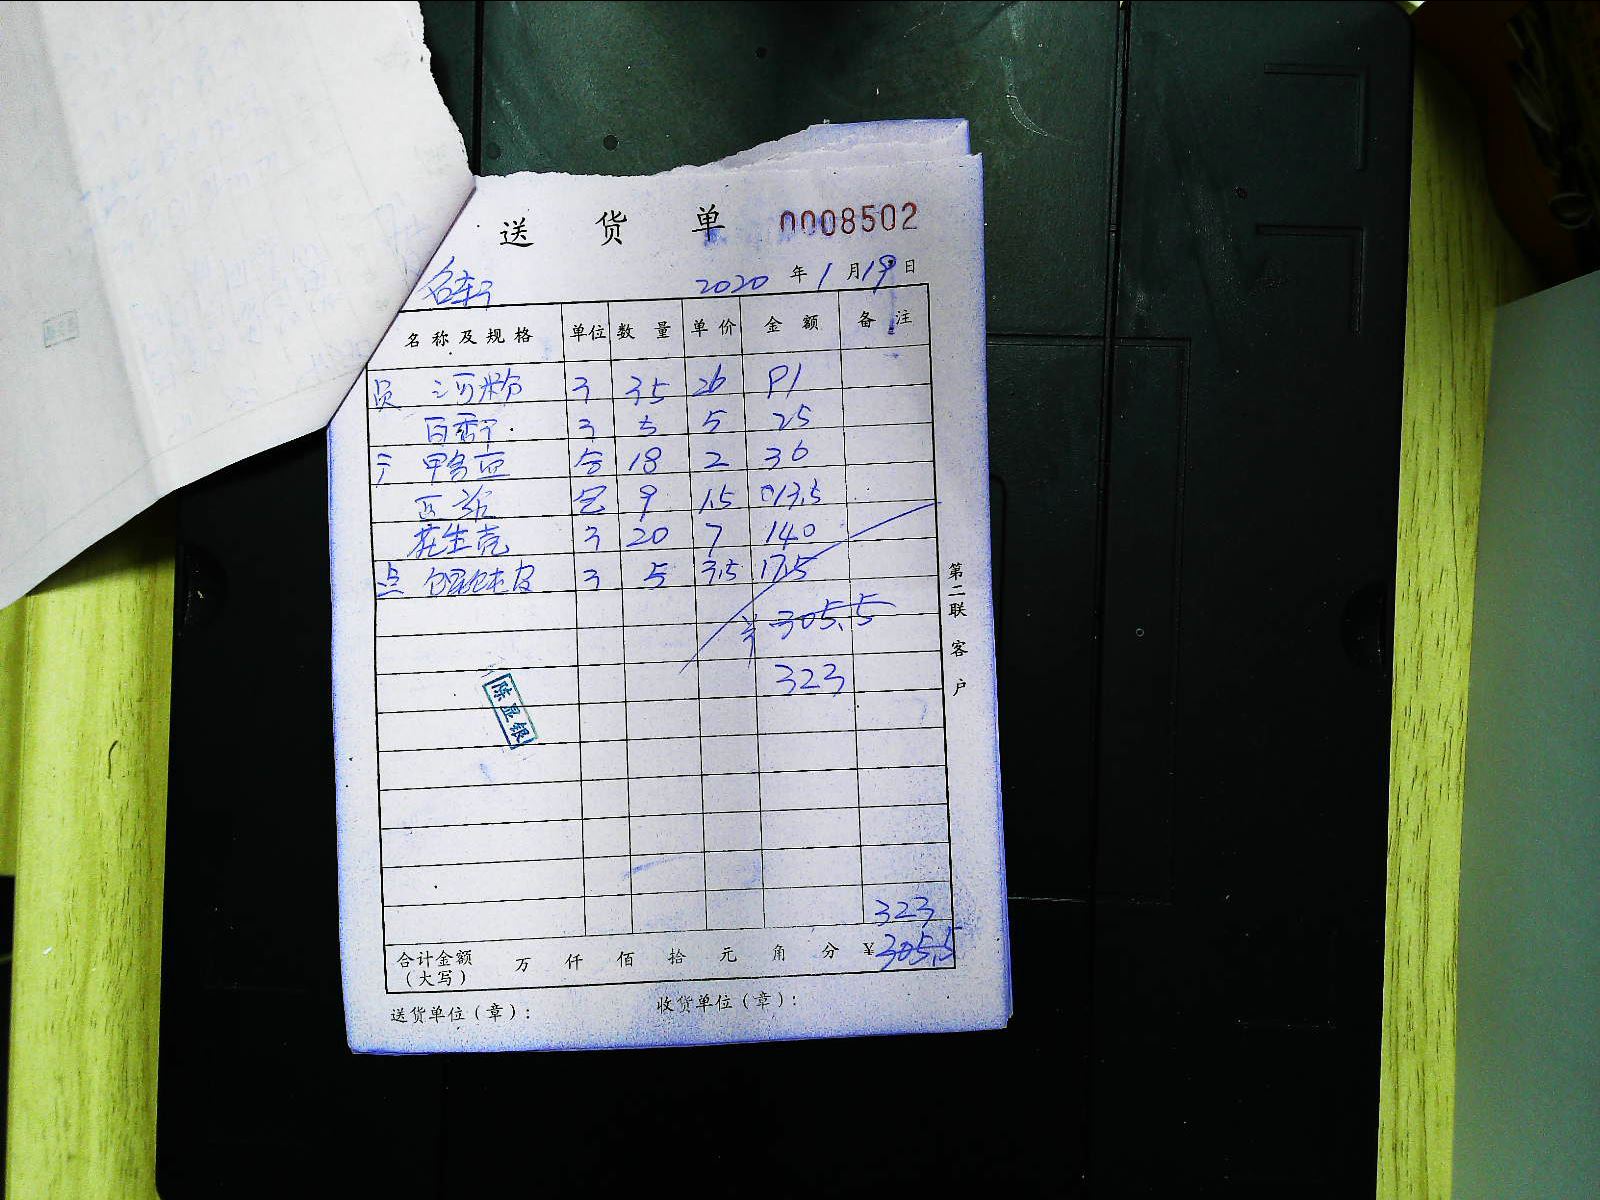 送 货 单 0008502
2020 年 1 月 19 日
名称及规格 单位 数量 单价 金额 备注
员 河粉 3 35 26 91
百香干 3 5 5 25
鸭血 合 18 2 36
9 1.5 013.5
花生壳 3 20 7 140
点 皮 3 5 3.5 17.5
¥ 305.5
323
陈显银
323
合计金额（大写） 万 仟 佰 拾 元 角 分 ¥305.5
送货单位（章）： 收货单位（章）：
第二联 客户